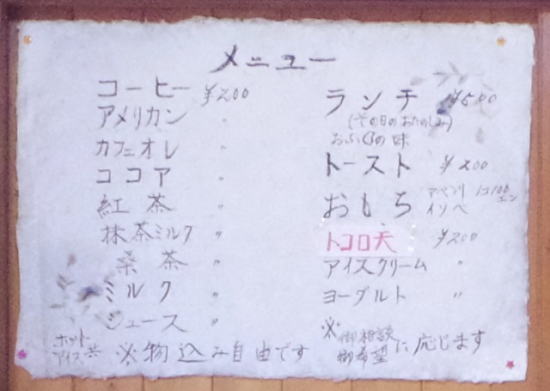 メニュー
コーヒー ¥200
アメリカン 〃
カフェオレ 〃
ココア 〃
紅茶 〃
抹茶ミルク 〃
桑茶 〃
ミルク 〃
ジュース 〃
ホット
アイス共
※物込み自由です
ランチ ¥500
(その日のおたのしみ)
おふくろの味
トースト ¥200
おもち アベ川 イソベ 1コ100エン
トコロ天 ¥200
アイスクリーム 〃
ヨーグルト 〃
※御相談
御希望に応じます